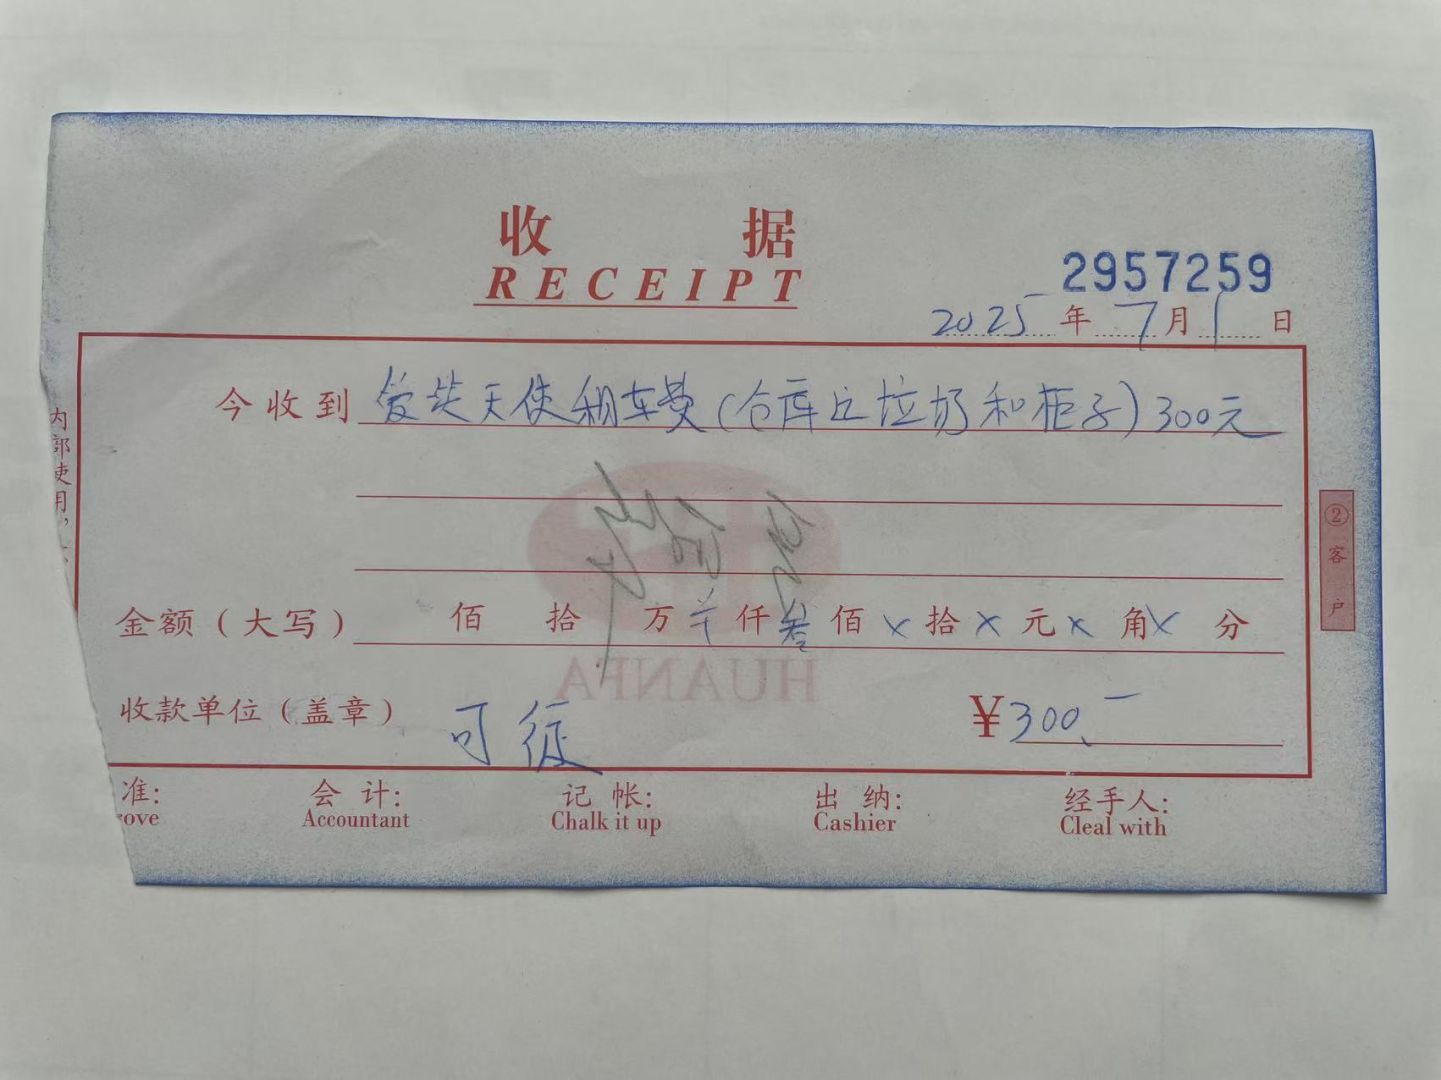 收据
RECEIPT
2957259
2025年7月1日
今收到 天使租车费(仓库丘垃圾和柜子)300元
金额(大写) 佰 拾 万 仟叁佰×拾×元×角×分
收款单位(盖章) ¥300.一
HUANFA
准: 会 计: 记 帐: 出 纳: 经手人:
rove Accountant Chalk it up Cashier Cleal with
内部使用,
②客户